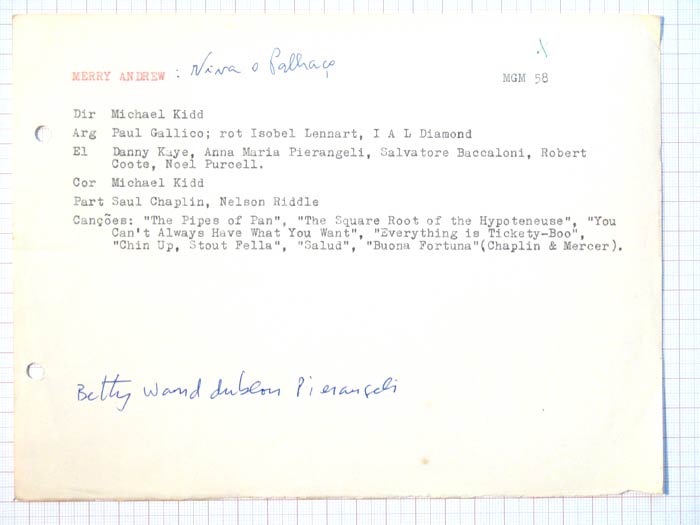 MERRY ANDREW : Viva o Palhaço MGM 58
Dir Michael Kidd
Arg Paul Gallico; rot Isobel Lennart, I A L Diamond
El Danny Kaye, Anna Maria Pierangeli, Salvatore Baccaloni, Robert
Coote, Noel Purcell.
Cor Michael Kidd
Part Saul Chaplin, Nelson Riddle
Canções: "The Pipes of Pan", "The Square Root of the Hypoteneuse", "You
Can't Always Have What You Want", "Everything is Tickety-Boo",
"Chin Up, Stout Fella", "Salud", "Buona Fortuna"(Chaplin & Mercer).
Betty Wand dublou Pierangeli